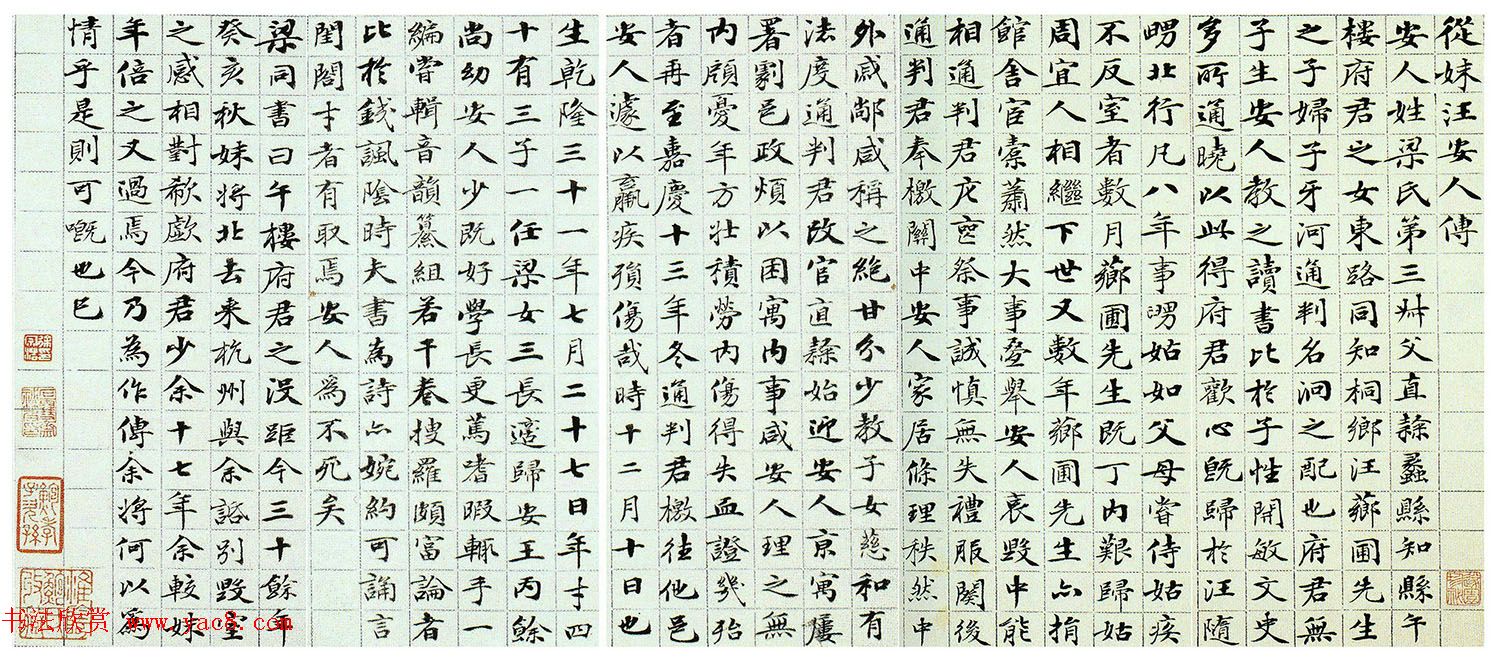 從妹汪安人傳
安人姓梁氏第三艸父直隸蠡縣知縣午
樓府君之女東路同知桐鄉汪薌圃先生
之子婦子牙河通判名泂之配也府君無
子生安人教之讀書比於子性開敏文史
多所通曉以此得府君歡心既歸於汪隨
北行凡八年事姑如父母嘗侍姑疾
不反室者數月薌圃先生既丁内艱歸姑
周宜人相繼下世又數年薌圃先生亦捐
館舍宦橐蕭然大事疊舉安人哀毀中能
相通判君庀祭事誠慎無失禮服闋後
通判君奉檄關中安人家居條理秩然中
外戚鄰咸稱之絕甘分少教子女慈和有
法度通判君改官直隸始迎安人京寓屢
署劇邑政煩以困寓内事咸安人理之無
内顧憂年方壯積勞内傷得失血證幾殆
者再至嘉慶十三年冬通判君檄往他邑
安人遽以羸疾殞傷哉時十二月十日也
生乾隆三十一年七月二十七日年才四
十有三子一任梁女三長適歸安王丙餘
尚幼安人少既好學長更篤嗜暇輒手一
編嘗輯音韻纂組若干卷搜羅頗富論者
比於錢諷陰時夫書為詩亦婉約可誦言
閨閤才者有取焉安人為不死矣
梁同書曰午樓府君之沒距今三十餘年
癸亥秋妹將北去來杭州與余别毀室
之感相對欷歔府君少余十七年余較妹
年倍之又過焉今乃為作傳余將何以為
情乎是則可嘅也已
书法欣赏 www.yac8.com